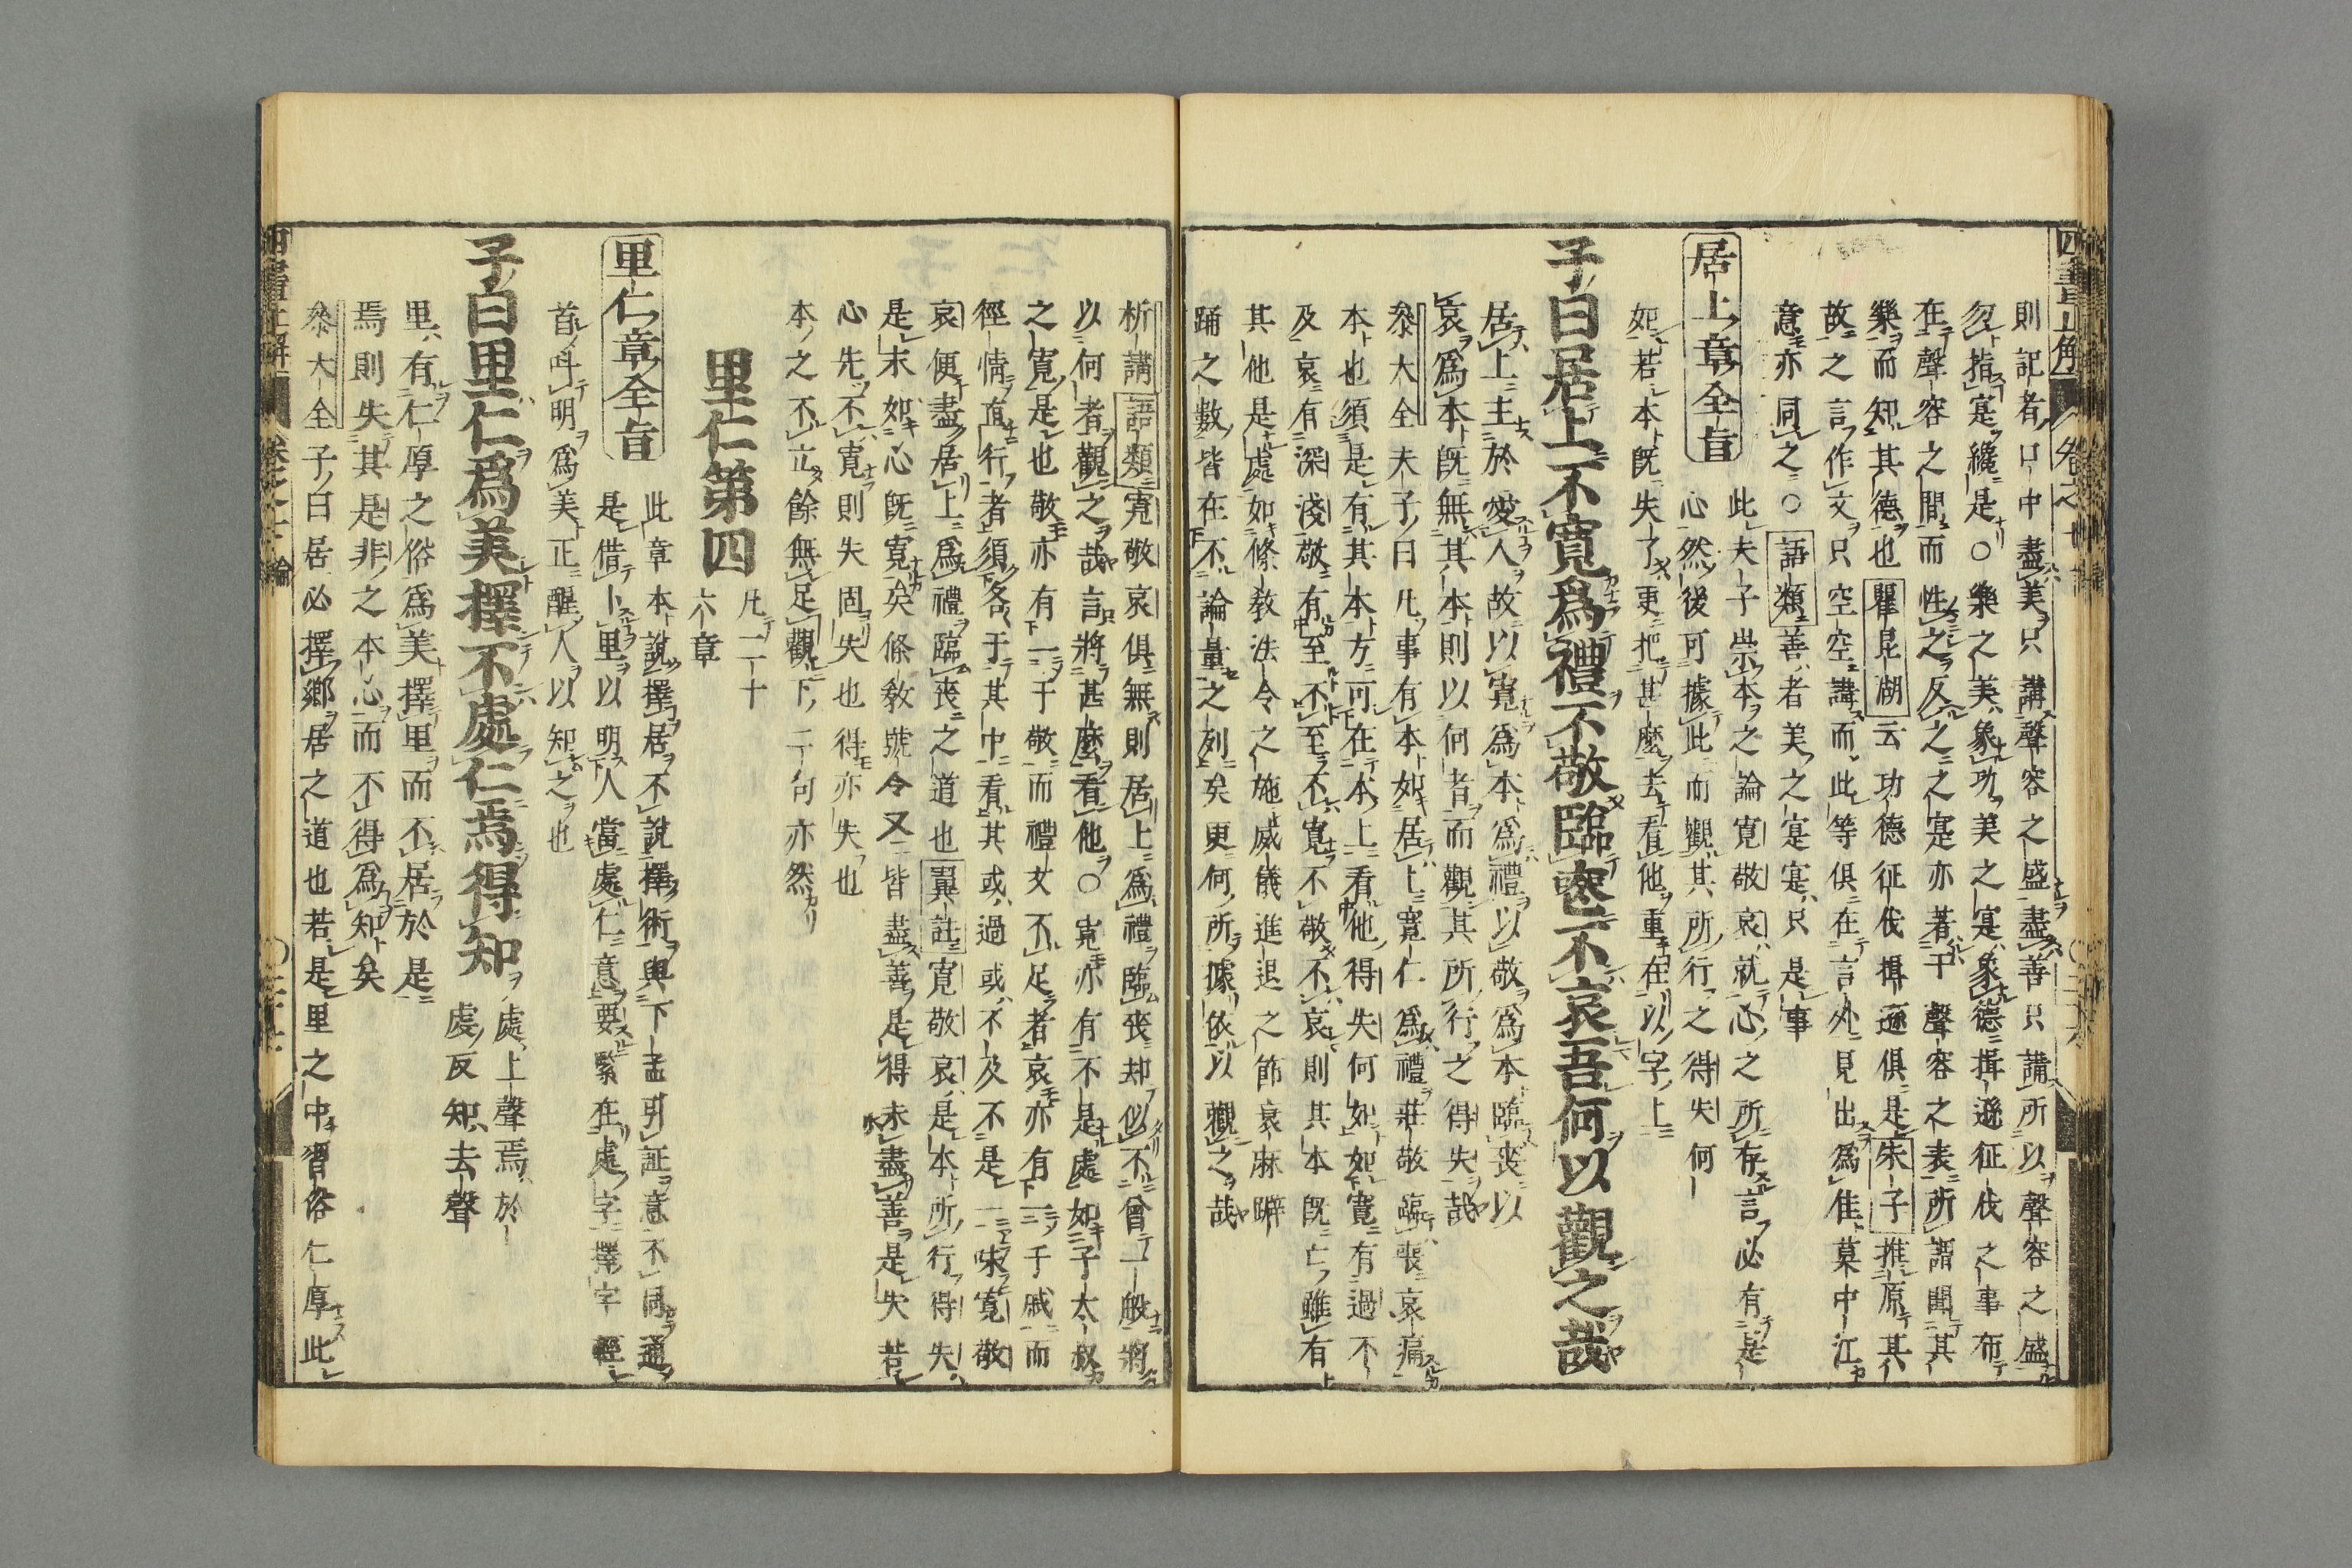 則記者只中盡美只講聲容之盛盡善只講所以聲容之盛
忽指寔纔是〇樂之美象功美之寔象德揖遜征伐之事布
在聲容之間而性之反之之寔亦著于聲容之表所謂聞其
樂而知其德也瞿昆湖云功德征伐揖遜俱是朱子推原其
故之言作文只空空講而此等俱在言外見出爲佳莫中江
意亦同之〇語類善者美之寔寔只是事
居上章全旨
此夫子崇本之論寬敬哀就心之所存言必有是
心然後可據此而觀其所行之得失何
如若本既失了更把甚麼去看他重在以字上
子曰居上不寬爲禮不敬臨喪不哀吾何以觀之哉
居上主於愛人故以寬爲本爲禮以敬爲本臨喪以
哀爲本既無其本則以何者而觀其所行之得失哉
叅大全夫子曰凡事有本如居上寬仁爲禮莊敬臨喪哀痛
本也須是有其本方可在本上看他得失何如如寬有過不
及哀有深淺敬有至不至不寬不敬不哀則其本既亡雖有
其他是處如條敎法令之施威儀進退之節哀麻躃
踊之數皆在不論量之列矣更何所據依以觀之哉
析講語類寬敬哀俱無則居上爲禮臨喪却似不曾一般將
以何者觀之哉言將甚麼看他〇寬亦有不是處如子太叔
之寬是也敬亦有一于敬而禮文不足者哀亦有一于戚而
徑情直行者須各于其中看其或過或不及不是一味寬敬
哀便盡居上爲禮臨喪之道也翼註寬敬哀是本所行得失
是末如心既寬矣條敎號令又皆盡善是得未盡善是失若
心先不寬則失固失也得亦失也
本之不立餘無足觀下二句亦然
里仁第四
凡二十
六章
里仁章全旨
此章本說擇居不說擇術與下孟引証意不同通
是借卜里以明人當處仁意要緊在處字擇字輕
首叫明爲美正醒人以知之也
子曰里仁爲美擇不處仁焉得知
處上聲焉於
虔反知去聲
里有仁厚之俗爲美擇里而不居於是
焉則失其是非之本心而不得爲知矣
叅大全子曰居必擇鄉居之道也若是里之中習俗仁厚此